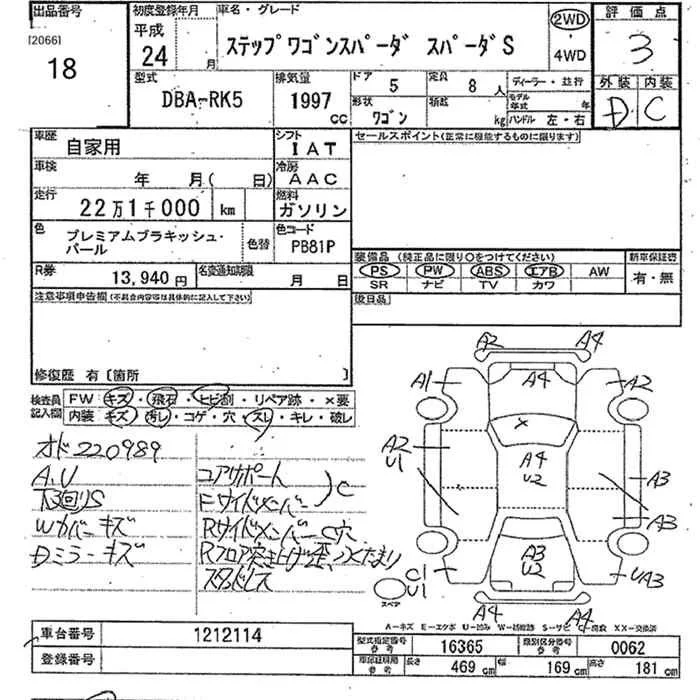 出品番号
[2066]
18
初度登録年月
平成
24 月
車名・グレード
ステップワゴンスパーダ スパーダS
2WD
4WD
評価点
3
外装 内装
D C
型式
DBA-RK5
排気量
1997 cc
ドア
5
定員
8 人
形状
ワゴン
積載
kg
ディーラー・並行
モデル年式 年
ハンドル 左・右
車歴
自家用
シフト
IAT
車検
年 月( 日)
冷房
AAC
走行
22万1千000 km
燃料
ガソリン
色
プレミアムブラキッシュ・パール
色替
色コード
PB81P
R券
13,940 円
名変通知期限
月 日
セールスポイント(正常に機能するものに限ります)
装備品 (純正品に限り〇をつけてください)
PS PW ABS エアB AW
SR ナビ TV カワ
新車保証書
有・無
後日品
注意事項申告欄(不具合内容等は具体的に記入して下さい)
修復歴 有〔箇所 〕
検査員記入欄
FW キズ・飛石・ヒビ割・リペア跡・×要
内装 キズ・汚レ・コゲ・穴・スレ・キレ・破レ
オド220989
A,U
下回りS
Wカバーキズ
Dミラーキズ
コアサポート
Fサイドメンバー
C
Rサイドメンバー C穴
Rフロア突き上げ歪、つくたまり
スタッドレス
A2 A4
A1 A4 A2
×
A2
U1
A4
U2
A3
A3
A3
U2
C1
U1
スペア
UA3
A4 A4
A-キズ E-エクボ U-凹み W-補修跡 S-サビ C-腐食 XX-交換済
車台番号
1212114
登録番号
型式指定番号 参考
16365
類別区分番号 参考
0062
車認証明用 参考
長さ 469 cm
幅 169 cm
高さ 181 cm